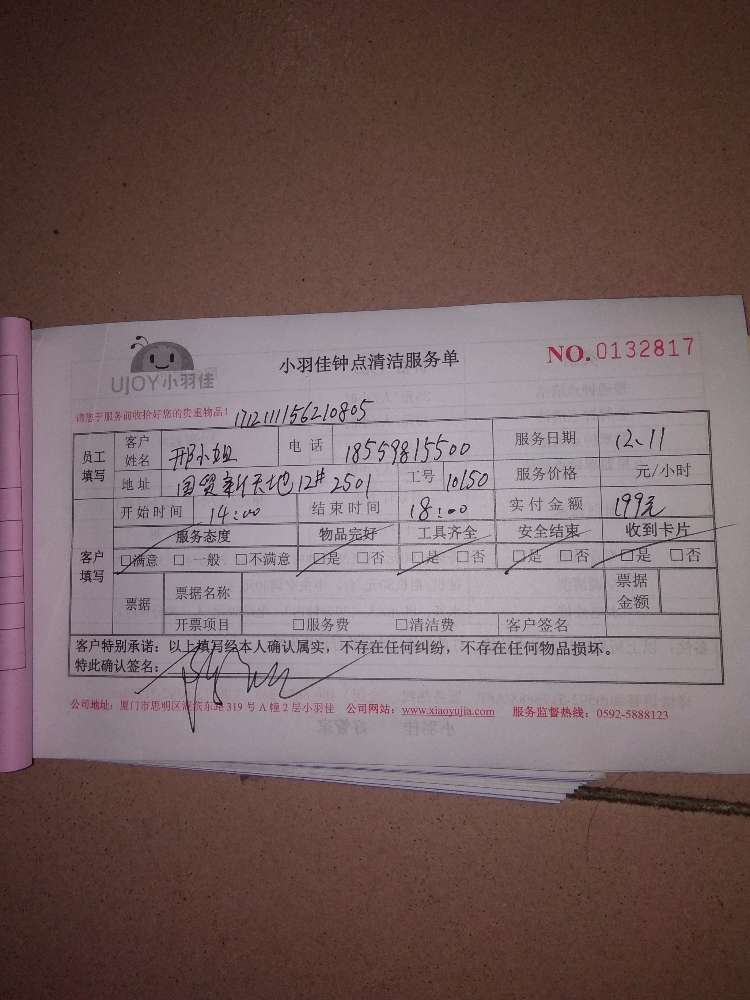 UJOY小羽佳
小羽佳钟点清洁服务单
NO. 0132817
请您于服务前收拾好您的贵重物品! 171211156210805
员工填写 客户姓名 邢小姐 电话 18559815500 服务日期 12.11
地址 国贸新天地12# 2501 工号 10150 服务价格 元/小时
客户填写 开始时间 14:00 结束时间 18:00 实付金额 199元
服务态度 物品完好 工具齐全 安全结束 收到卡片
□满意 □一般 □不满意 □是 □否 □是 □否 □是 □否 □是 □否
票据 票据名称 票据金额
开票项目 □服务费 □清洁费 客户签名
客户特别承诺:以上填写经本人确认属实,不存在任何纠纷,不存在任何物品损坏。
特此确认签名:
公司地址:厦门市思明区湖滨东路 319 号 A 幢 2 层小羽佳 公司网站:www.xiaoyujia.com 服务监督热线:0592-5888123